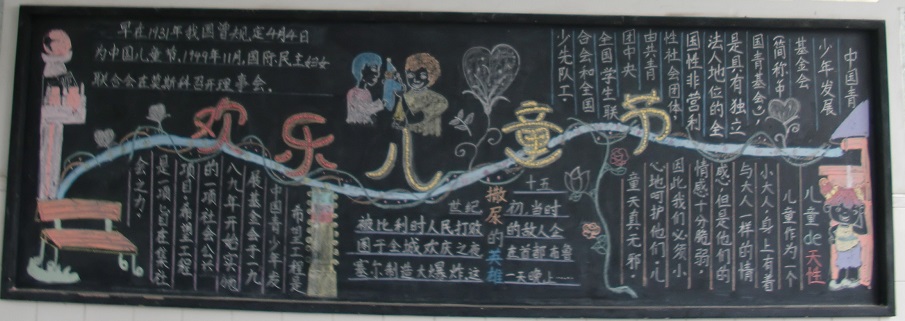 早在1931年我国曾规定4月4日
为中国儿童节,1949年11月,国际民主妇女
联合会在莫斯科召开理事会。
欢乐儿童节
中国青
少年发展
基金会
(简称中
国青基会),
是具有独立
法人地位的全
国性非营利
性社会团体,
由共青
团中央
全国学生联
合会和全国
少先队工
希望工程是
中国青少年发
展基金会于一九
八九年开始实施
的一项社会公益
项目,希望工程
是一项旨在集社
会之力,
撒尿的英雄
十五
世纪初,当时
被比利时人民打败的敌人企
图于全城欢庆之夜在首都布鲁
塞尔制造大爆炸,这一天晚上……
儿童de天性
儿童作为一个
小大人,身上有着
与大人一样的情
感,但是他们的
情感十分脆弱,
因此我们必须小
心地呵护他们,儿
童天真无邪,